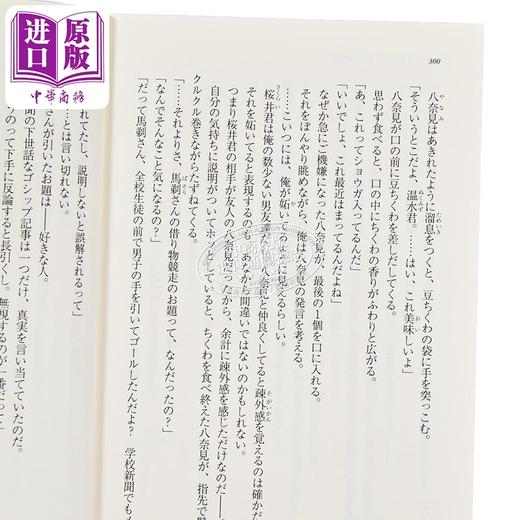 进口
原版
中華商務
300
八奈見はあきれたように溜息をつくと、豆ちくわの袋に手を突っこむ。
「そういうとこだよ、温水君。……はい、これ美味しいよ」
八奈見が俺の口の前に豆ちくわを差しだしてくる。
思わず食べると、口の中にちくわの香りがふわりと広がる。
「あ、これってショウガ入ってるんだ」
「いいでしょ、これ最近はまってるんだよね」
なぜか急にご機嫌になった八奈見が、最後の1個を口に入れる。
それをぼんやり眺めながら、俺は八奈見の発言を考える。
……こいつには、俺が妬いてるように見えるらしい。
桜井君は俺の数少ない男友達だ
八奈見と仲良くしてると疎外感を覚えるのは確かだ
それを妬いてると表現するのも、あながち間違いではないのかもしれない。
つまり桜井君の相手が友人の八奈見だったから、余計に疎外感を感じただけなのだ――
自分の気持ちに説明がついてホッとしていると、ちくわを食べ終えた八奈見が、指先で
クルクル巻きながらたずねてくる。
「……それよりさ、馬剃さんの借り物競走のお題って、なんだったの?」
「なんでそんなこと気になるの?」
「だって馬剃さん、全校生徒の前で男子の手を引いてゴールしたんだよ? 学校新聞でも
れてたし、説明しないと誤解されるって」
……とは言い切れない。
さんが引いたお題は――好きな人。
聞の下世話なゴシップ記事は一つだけ、真実を言い当てていたのだ。
うのって下手に反論すると長引くし。無視するのが一番だって」